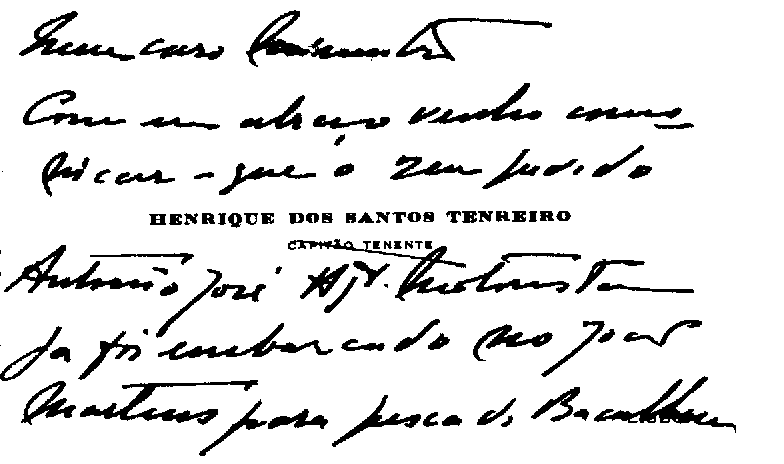 Meu caro
Com um abraço venho comu
nicar - que o seu pedido
HENRIQUE DOS SANTOS TENREIRO
CAPITÃO TENENTE
António José Ajt. Motorista
Ja foi embarcado no João
Martins para pesca do Bacalhau